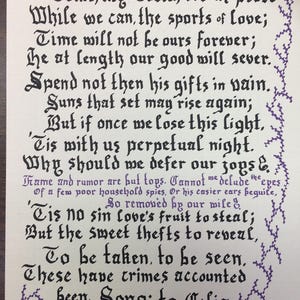 While we can, the sports of love;
Time will not be ours forever;
He at length our good will sever.
Spend not then his gifts in vain.
Suns that set may rise again;
But if once we lose this light,
'Tis with us perpetual night.
Why should we defer our joys &
Fame and rumor are but toys. Cannot we delude the eyes
Of a few poor household spies, Or his easier ears beguile,
So removed by our wile &
'Tis no sin love's fruit to steal;
But the sweet thefts to reveal,
To be taken, to be seen,
These have crimes accounted
been. Song: to Celia